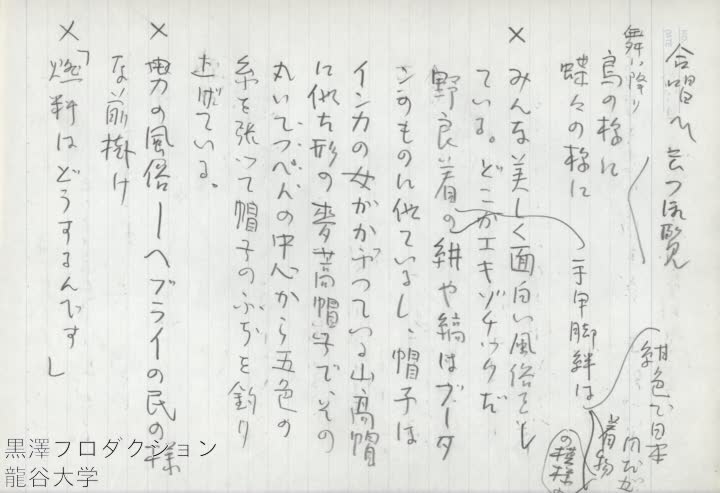 合唱へ
舞い降り
鳥の様に
蝶々の様に
手甲脚絆は
紺色で日本
同だが
着物
の模様の
×みんな美しく面白い風俗をし
ている。どこかエキゾチックだ
野良着の絣や縞はブータ
ンのものに似ているし、帽子は
インカの女がかぶっている山高帽
に似た形の麦藁帽子で、その
丸いてっぺんの中心から五色の
糸を張って帽子のふちを釣り
上げている。
×男の風俗―ヘブライの民の様
な前掛け
×「燃料はどうするんです」
黒澤プロダクション
龍谷大学